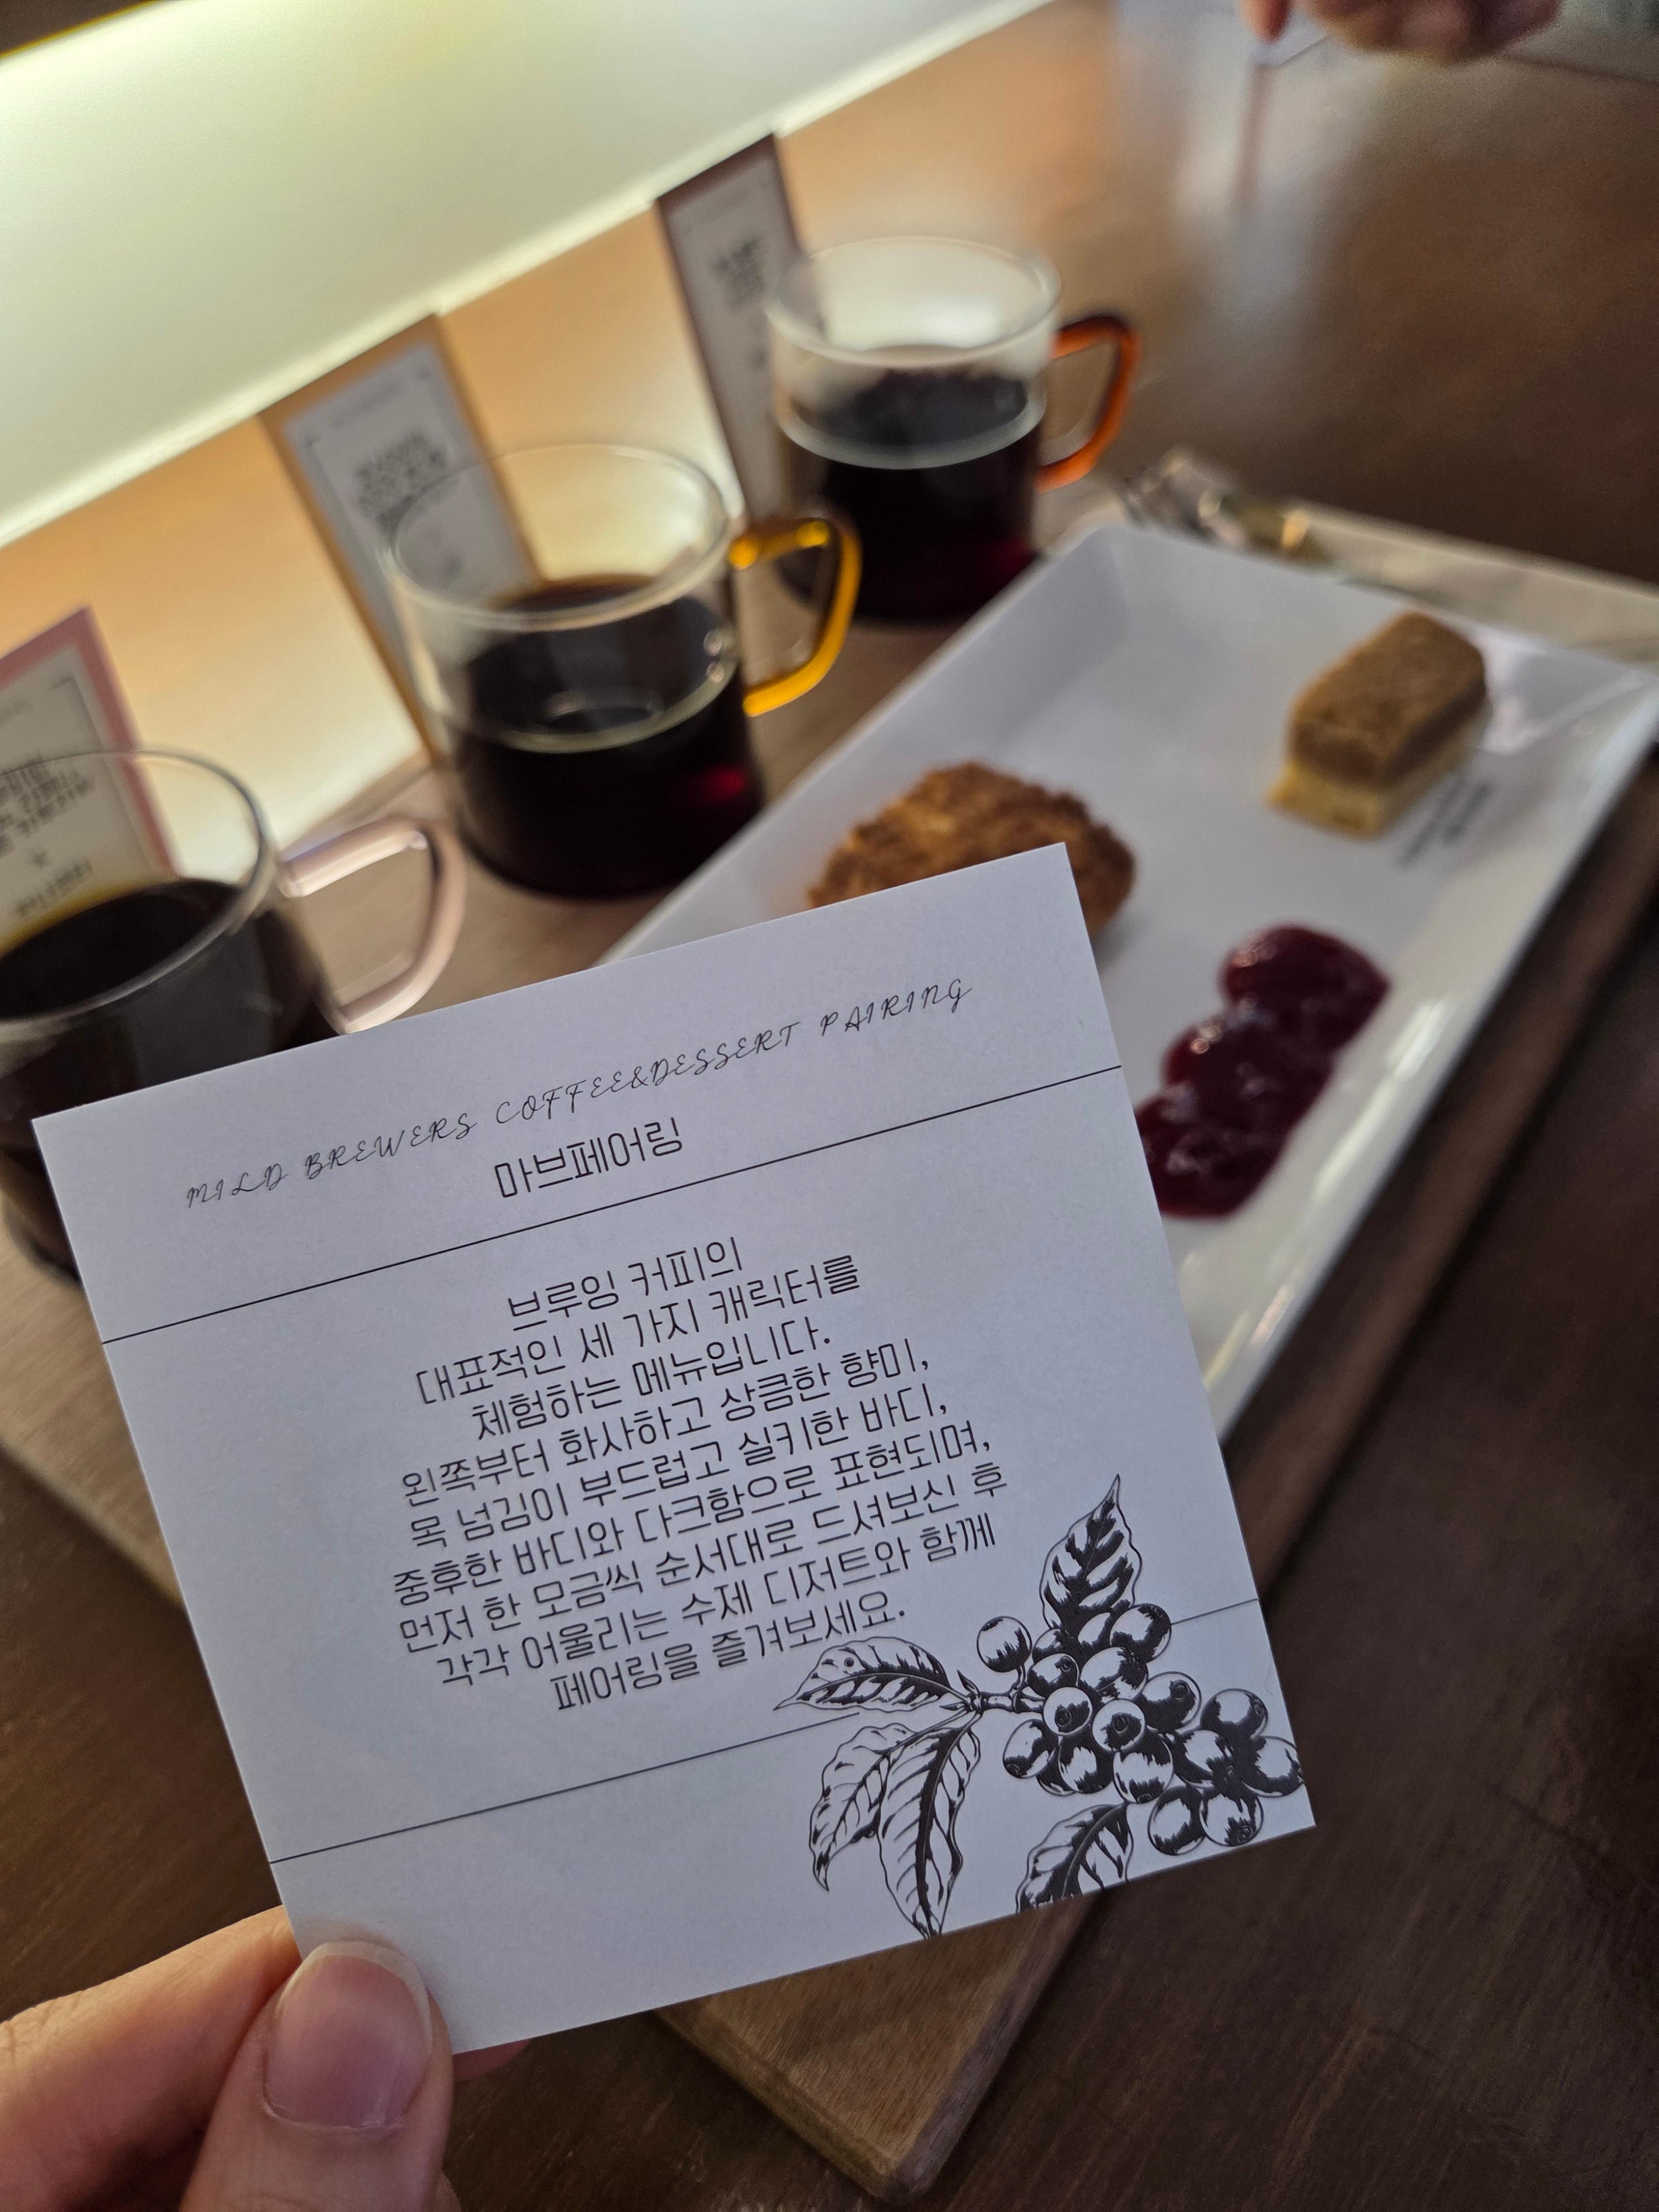 MILD BREWERS COFFEE&DESSERT PAIRING
마브페어링
브루잉 커피의
대표적인 세 가지 캐릭터를
체험하는 메뉴입니다.
왼쪽부터 화사하고 상큼한 향미,
목 넘김이 부드럽고 실키한 바디,
중후한 바디와 다크함으로 표현되며,
먼저 한 모금씩 순서대로 드셔보신 후
각각 어울리는 수제 디저트와 함께
페어링을 즐겨보세요.